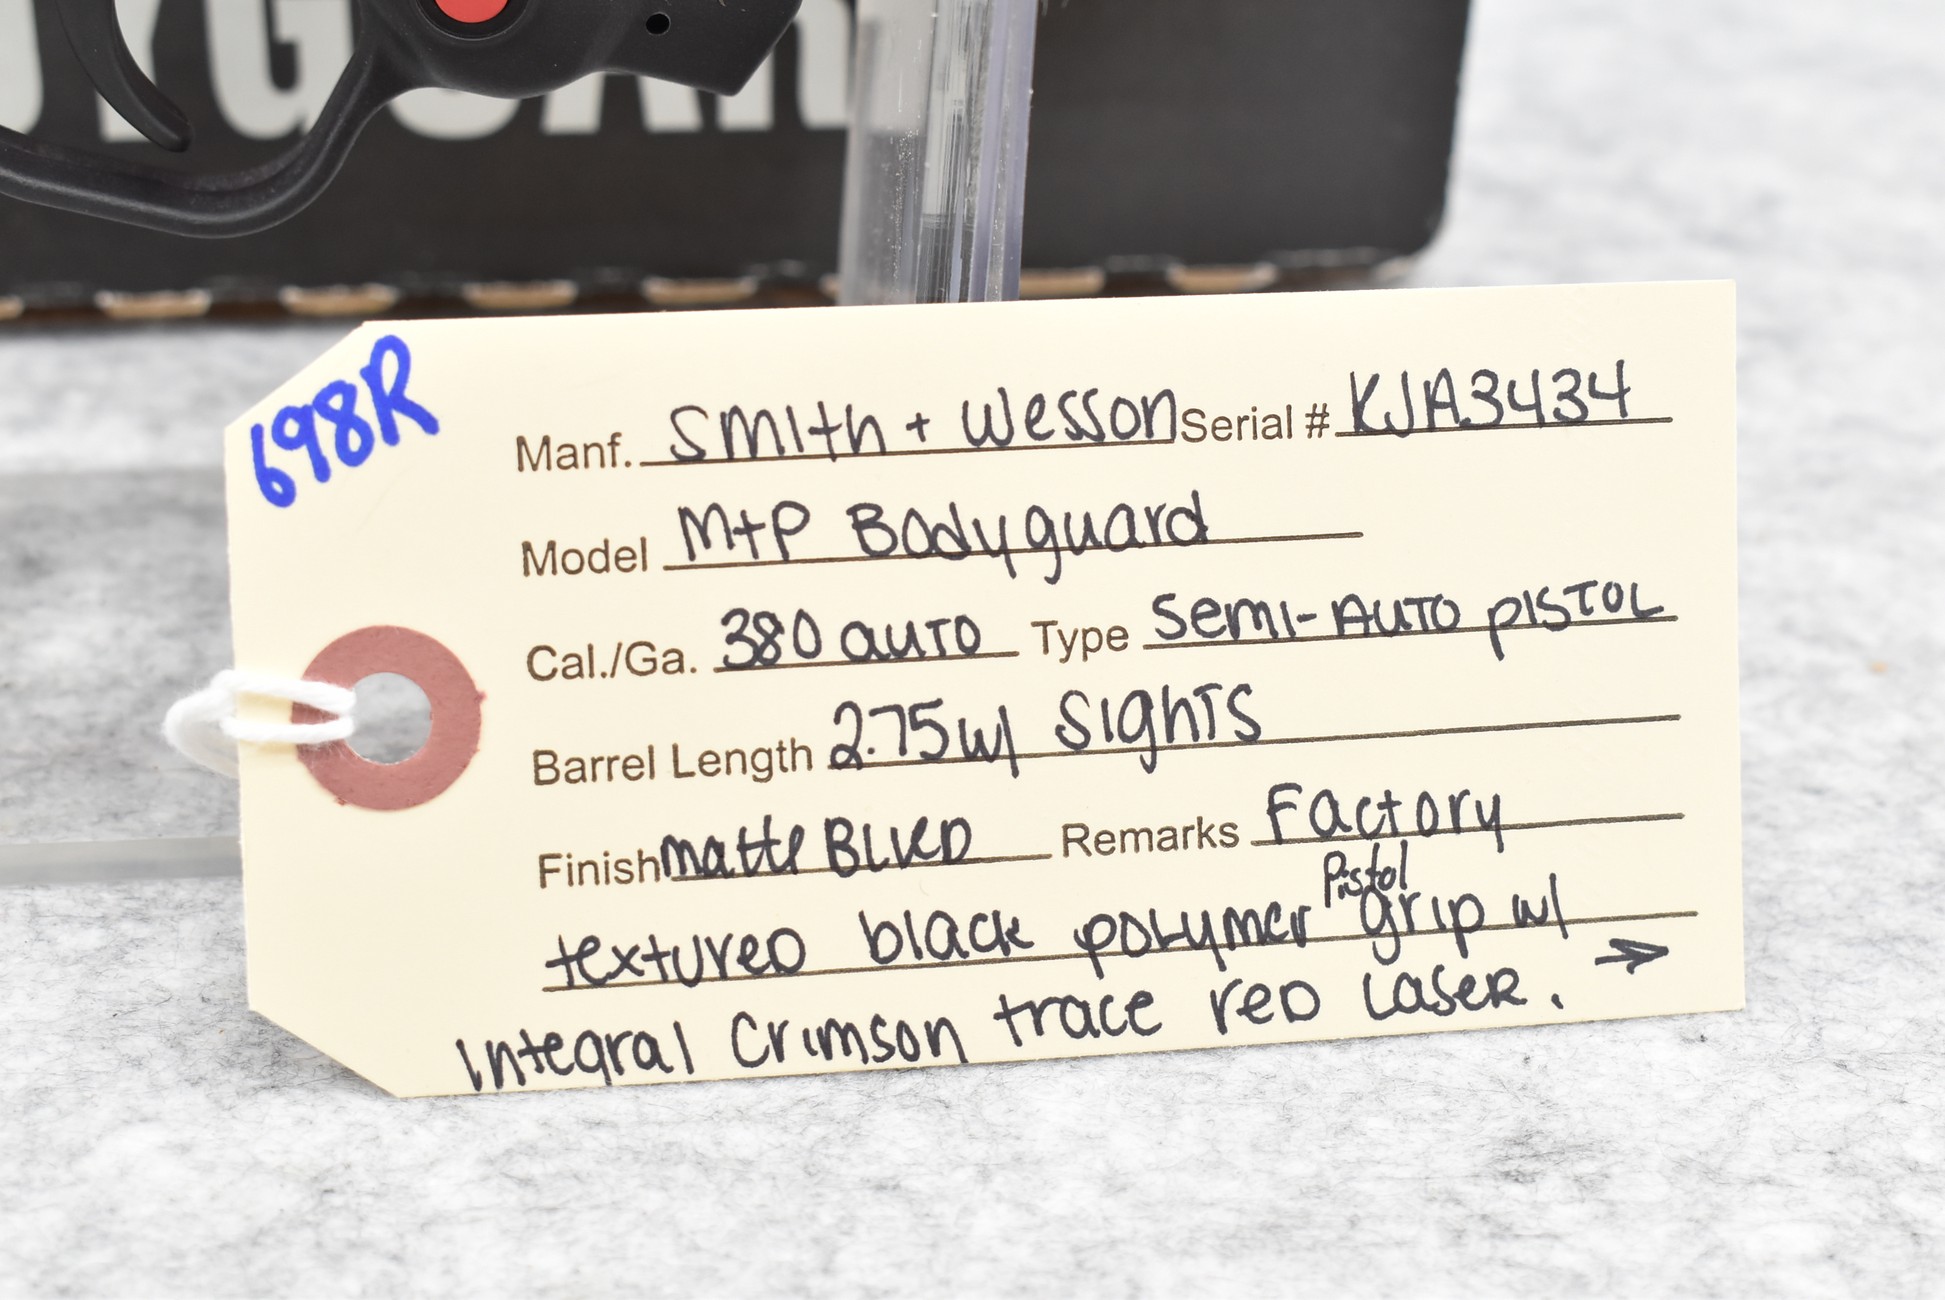 YGUAR
698R
Manf. Smith + Wesson Serial # KJA3434
Model M+P Bodyguard
Cal./Ga. 380 auto Type Semi-Auto pistol
Barrel Length 2.75 w/ Sights
Finish matte BLUED Remarks Factory
textured black polymer pistol grip w/
Integral Crimson trace red Laser. →